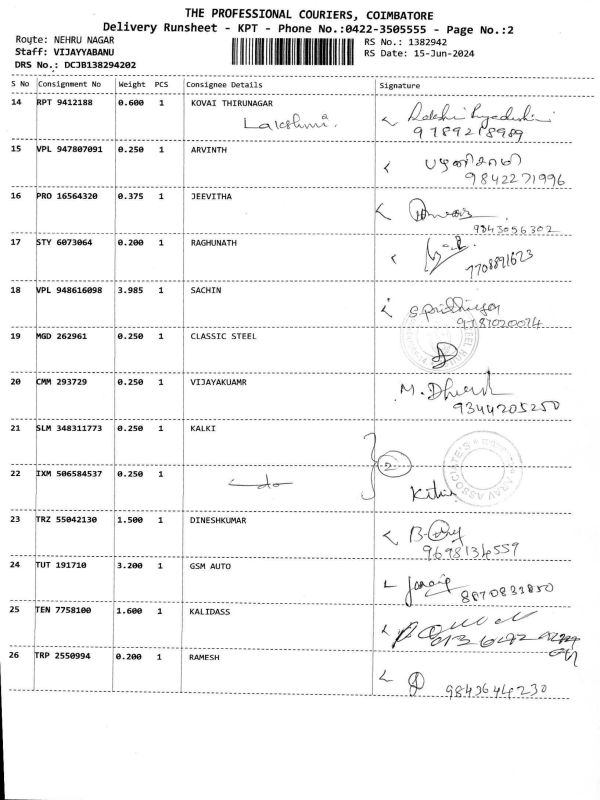 THE PROFESSIONAL COURIERS, COIMBATORE
Delivery Runsheet - KPT - Phone No.:0422-3505555 - Page No.:2
Route: NEHRU NAGAR
RS No.: 1382942
Staff: VIJAYYABANU
RS Date: 15-Jun-2024
DRS No.: DCJB138294202
S No Consignment No Weight PCS Consignee Details Signature
14 RPT 9412188 0.600 1 KOVAI THIRUNAGAR
Lakshmi.
9789218989
15 VPL 947807091 0.250 1 ARVINTH
பழனிசாமி
9842271996
16 PRO 16564320 0.375 1 JEEVITHA
9843056302
17 STY 6073064 0.200 1 RAGHUNATH
7708891623
18 VPL 948616098 3.985 1 SACHIN
9787020074
19 MGD 262961 0.250 1 CLASSIC STEEL
20 CMM 293729 0.250 1 VIJAYAKUAMR
M. Dhinesh
9344205250
21 SLM 348311773 0.250 1 KALKI
2
ARAV ASSOCIATES
22 IXM 506584537 0.250 1 do
23 TRZ 55042130 1.500 1 DINESHKUMAR
9698134559
24 TUT 191710 3.200 1 GSM AUTO
8870833850
25 TEN 7758100 1.600 1 KALIDASS
26 TRP 2550994 0.200 1 RAMESH
9843644230